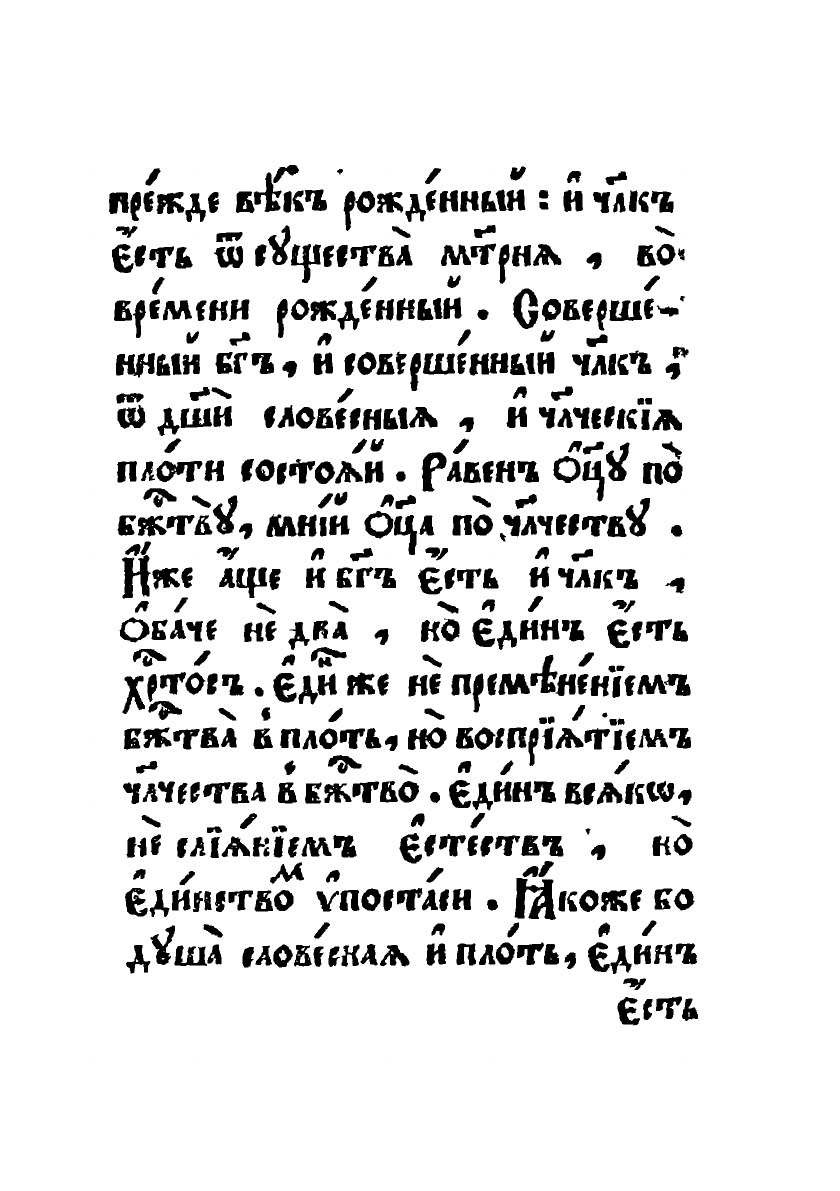 пре́жде вѣ̑къ рожде́нный : и҆ чл҃къ
є҆́сть ѿ сꙋщества̀ мт҃рнѧ , во̀
вре́мени рожде́нный . Соверше́-
нный бг҃ъ , и҆ соверше́нный чл҃къ ,
ѿ дш҃ѝ слове́сныѧ , и҆ чл҃ческїѧ
пло́ти состоѧ́й . Ра́венъ ѻ҆ц҃ꙋ̀ по̀
бжⷭ҇твꙋ̀, мні́й ѻ҆ц҃а̀ по̀ чл҃чествꙋ .
И҆́же а҆́ще и҆ бг҃ъ є҆́сть и҆ чл҃къ ,
ѻ҆ба́че нѐ два̀ , но̀ є҆ди́нъ є҆́сть
хрⷭ҇то́съ . Є҆ди́нже нѐ премѣне́нїемъ
бжⷭ҇тва̀ в̾ пло́ть, но̀ воспрїѧ́тїемъ
чл҃чества в̾ бжⷭ҇тво̀ . Є҆ди́нъ всѧ́кѡ,
нѐ слїѧ́нїемъ є҆сте́ствъ , но̀
є҆ди́нствоⷨ ѵ҆поста́си . Ꙗ҆́коже бо
дꙋша̀ слове́снаѧ и҆ пло́ть, є҆ди́нъ
є҆́сть